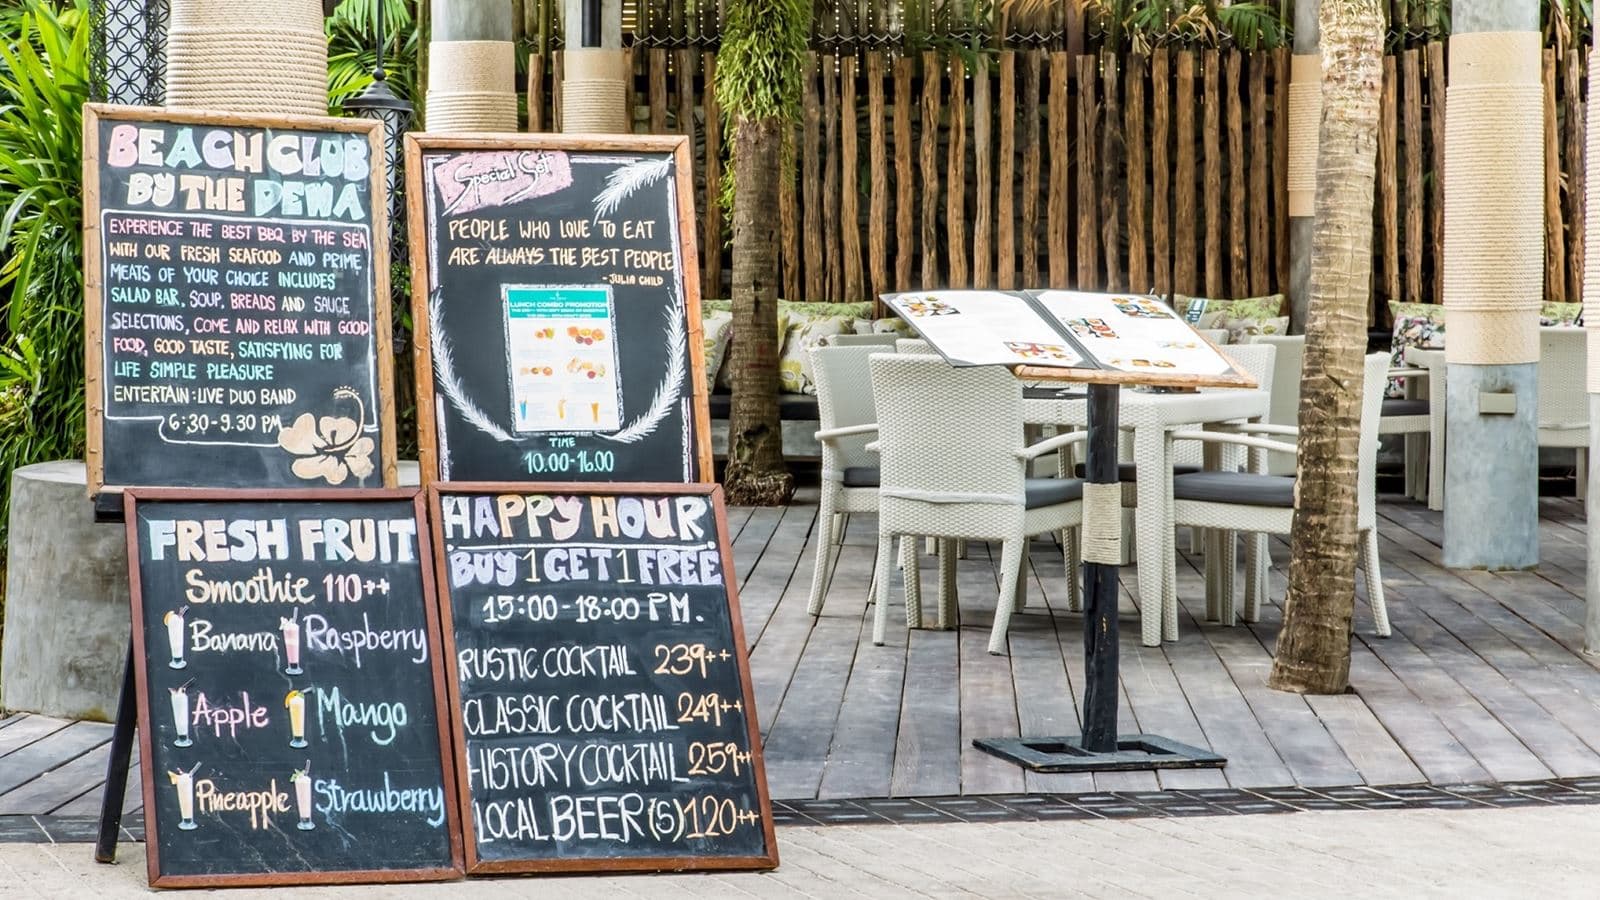 BEACH CLUB
BY THE DEWA
EXPERIENCE THE BEST BBQ BY THE SEA
WITH OUR FRESH SEAFOOD AND PRIME
MEATS OF YOUR CHOICE INCLUDES
SALAD BAR, SOUP, BREADS AND SAUCE
SELECTIONS, COME AND RELAX WITH GOOD
FOOD, GOOD TASTE, SATISFYING FOR
LIFE SIMPLE PLEASURE
ENTERTAIN: LIVE DUO BAND
6:30-9.30 PM
Special Set
PEOPLE WHO LOVE TO EAT
ARE ALWAYS THE BEST PEOPLE
- JULIA CHILD
LUNCH COMBO PROMOTION
TIME
10.00-16.00
FRESH FRUIT
Smoothie 110++
Banana Raspberry
Apple Mango
Pineapple Strawberry
HAPPY HOUR
BUY 1 GET 1 FREE
15:00-18:00 PM.
RUSTIC COCKTAIL 239++
CLASSIC COCKTAIL 249++
HISTORY COCKTAIL 259++
LOCAL BEER (S) 120++